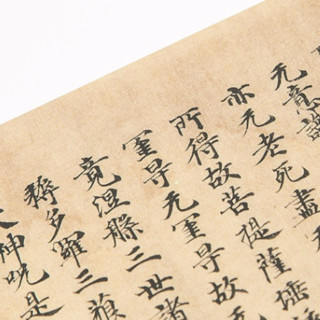 无意識
亦无老死盡无
所得故菩提薩埵
罣㝵无罣㝵故
竟涅槃三世諸
耨多羅三藐
大神呪是